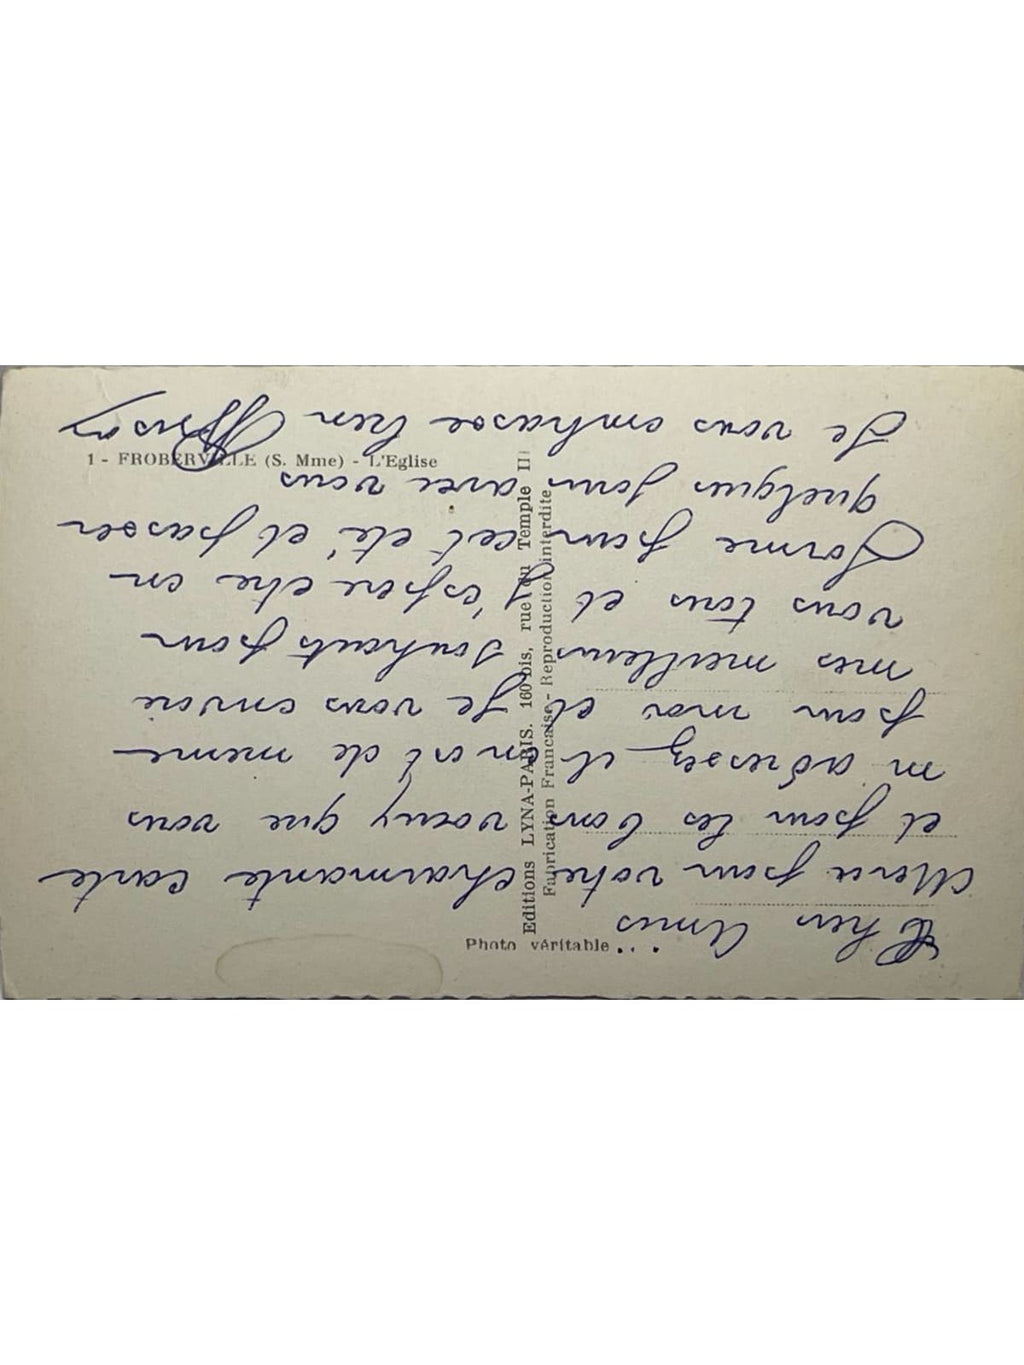 1 - FROBERVILLE (S. Mme) - L'Eglise
Photo véritable
Editions LYNA-PARIS. 160 bis, rue du Temple II
Fabrication Francaise - Reproduction interdite
Chers Amis
Merci pour votre charmante carte
et pour les bons voeux que vous
m adressez il en est de meme
pour moi et Je vous envoie
mes meilleurs souhaits pour
vous tous et J'espere etre en
forme pour cet eté et passer
quelques jours avec vous
Je vous embrasse bien